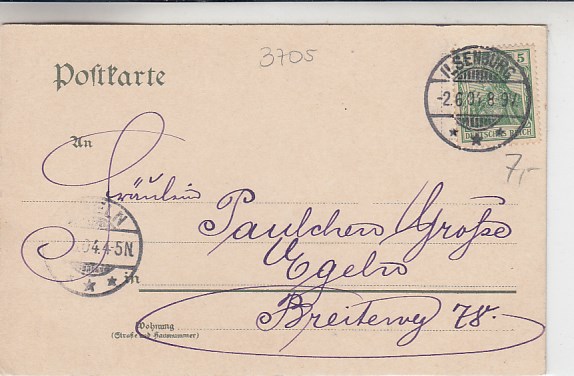 3705
Postkarte
ILSENBURG
-2.6.04.8-9V
5
DEUTSCHES REICH
7,-
An
Fräulein
Paulchen Große
Egeln
in
Breiteweg 78.
Wohnung
(Straße und Hausnummer)
ELN
.04.4-5N.